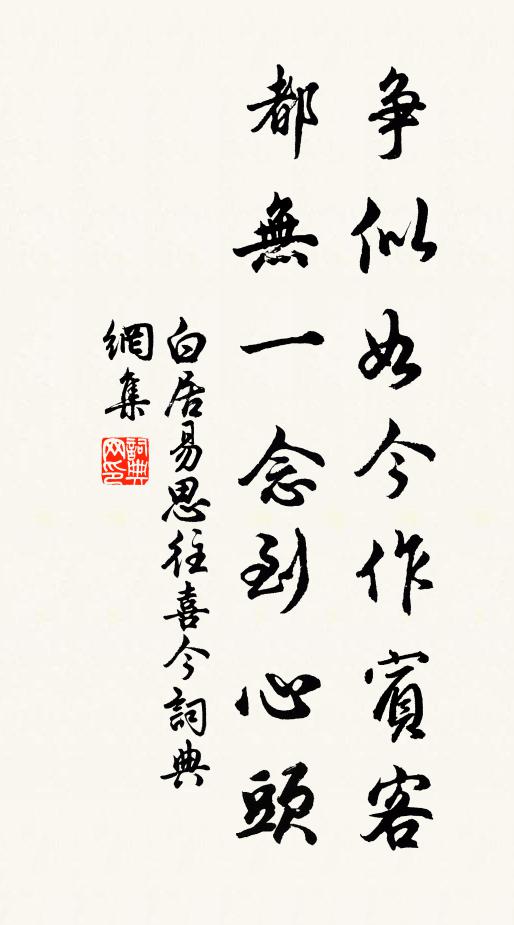 争似如今作賓客
都無一念到心頭
白居易思往喜今詞典
網集
詞典
网印